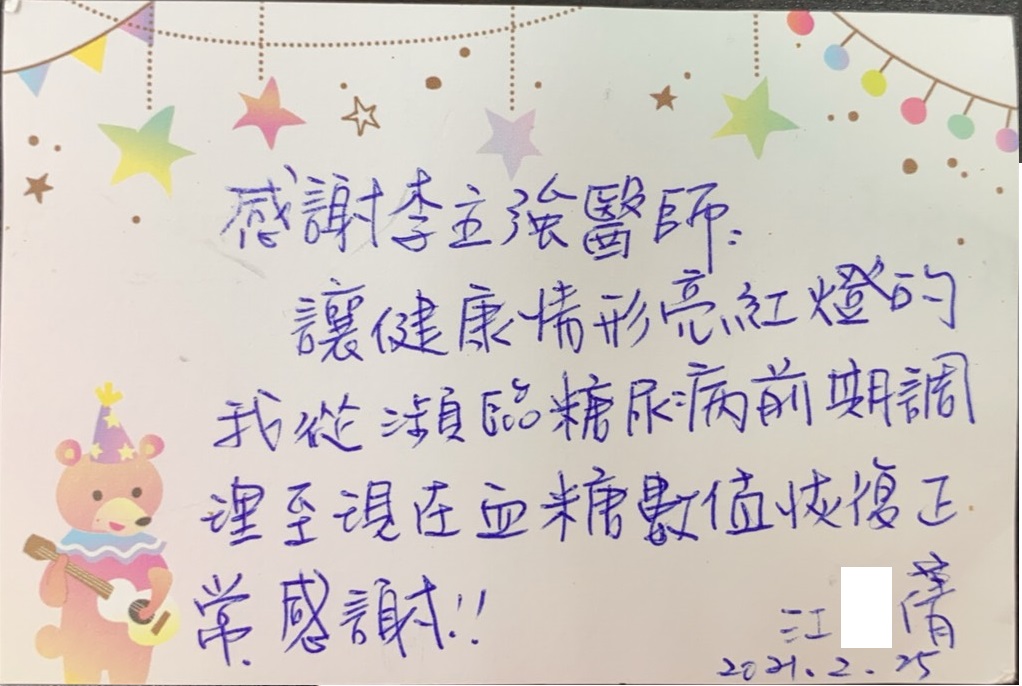 感謝李主強醫師:
讓健康情形亮紅燈的
我從瀕臨糖尿病前期調
理至現在血糖數值恢復正
常.感謝!!
江 蒨
2021.2.25